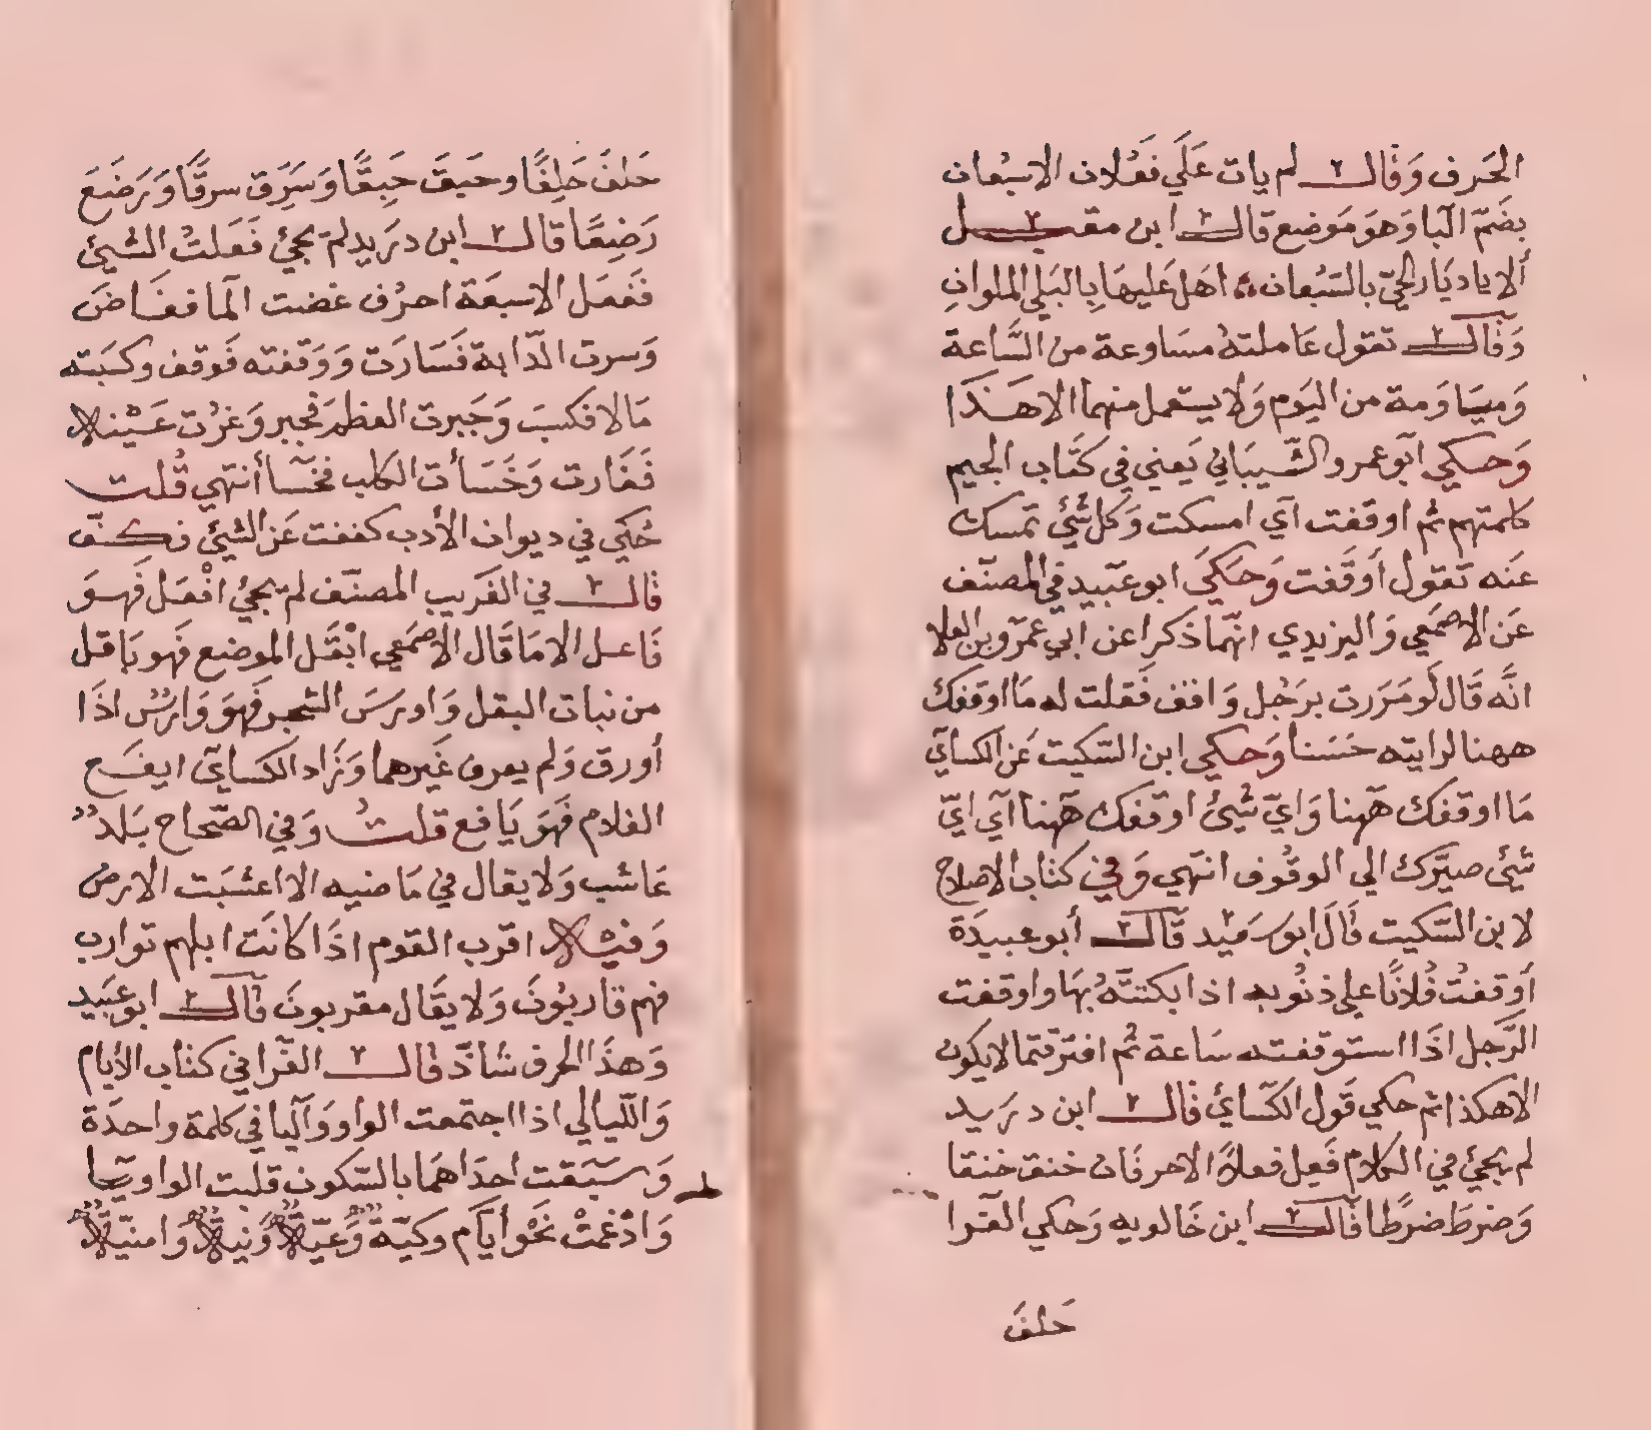 الحَرف وَقال لم يات عَلَي فَعُلان الاسبُعان
بضَمّ البا وَهوَ مَوضع قال ابن مقبل
ألا يا ديَار الحيّ بالسَّبُعان اهَل عَليهَا بِالبَلي الملوانِ
وَقال تقول عَاملتهُ مسَاوعة من السَّاعة
وَميَاوَمة من اليَوم وَلا يستعمل منهما الا هَذَا
وَحكي ابو عمرو الشّيبَاني يَعني في كتَاب الجيم
كلمتهم ثم اوقفت اي امسكت وَكل شَئ تمسك
عَنه تقول أوقَفت وَحكَي ابو عبَيد في المصنّف
عَن الاصمَعي وَاليزيدي انهمَا ذكرا عن ابي عمرو بن العلا
انَّه قَال لَو مَرَرت برَجُل وَاقف فَقلت له مَا اوقفك
ههنا لرايته حَسَنا وَحكي ابن السّكيت عَن الكساي
مَا اوقفك ههنا وَايّ شَئ اوقفك ههنا اي ايّ
شئ صيّرك الي الوقُوف انتهي وَفي كتاب الاصلاح
لابن السّكيت قَالَ ابو سَعيد قَال أبو عبيدَة
أوقفتُ فُلانًا علي ذنُوبه اذا بكتتَّهُ بهَا واوقفت
الرّجل اذَا استوقفته سَاعة ثم افترقتما لا يكون
الا هكذا ثم حكي قَول الكسَائ قال ابن دريَد
لم يجئ في الكلام فَعِل فعلاً الا حرفَان خنق خنقا
وَضرطَ ضرطًا قَال ابن خَالويه وَحكي الفرا
حَلفَ
حَلفَ حَلِفًا وحَبقَ حَبِقًا وَسَرَق سرقًا وَرَضَعَ
رَضِعًا قال ابن دريَد لم يجئ فَعَلتُ الشيئ
فَفَعَل الا سبعَة احرُف غضت الما فغَاضَ
وَسرت الدّابة فَسَارَت وَوَقفته فَوقف وكسَبته
مَالا فكسبَ وَجَبرت العظم فجبر وَغرُت عَيْنه
فَغَارت وَخَسَأت الكلب فخسَأ أنتهي قُلت
حُكي في ديوان الأدب كففت عَن الشئ فكفّ
قال في الغَريب المصنّف لم يجئ افْعَل فَهوَ
فَاعل الا مَا قَال الاصمَعي ابْقَل الموضع فَهو بَاقل
من نبات البقل وَاورَسَ الشجر فَهوَ وَارسٌ اذَا
أورق وَلم يعرف غَيرهما وَزَاد الكساي ايفَع
الغلام فَهَو يَافع قلتُ وَفي الصّحاح بَلدٌ
عَاشب وَلا يقال في مَاضيه الا اعشبَت الارض
وَفيْه اقرب القوم اذَا كانَت ابلهم توارب
فهم قاربُونَ وَلا يقَال مقربونَ قال ابو عبَيد
وَهذَا الحرف شاذّ قال الفرّا في كتاب الأيام
وَاللّيالي اذا اجتمعت الواو وَاليا في كلمة واحدَة
وَسَبَقت احدَاهمَا بالسّكون قلبت الواو يا
وَادْغمتْ نَحْو أيّام وكيّة وَعيّة وَنية وَامنيّة